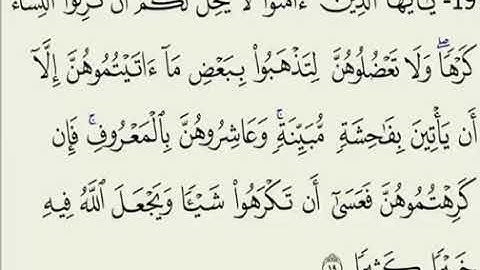 19- يَٰٓأَيُّهَا ٱلَّذِينَ ءَامَنُوا۟ لَا يَحِلُّ لَكُمْ أَن تَرِثُوا۟ ٱلنِّسَآءَ
كَرْهًۭا ۖ وَلَا تَعْضُلُوهُنَّ لِتَذْهَبُوا۟ بِبَعْضِ مَآ ءَاتَيْتُمُوهُنَّ إِلَّآ
أَن يَأْتِينَ بِفَٰحِشَةٍۢ مُّبَيِّنَةٍۢ ۚ وَعَاشِرُوهُنَّ بِٱلْمَعْرُوفِ ۚ فَإِن
كَرِهْتُمُوهُنَّ فَعَسَىٰٓ أَن تَكْرَهُوا۟ شَيْـًۭٔا وَيَجْعَلَ ٱللَّهُ فِيهِ
خَيْرًۭا كَثِيرًۭا ١٩